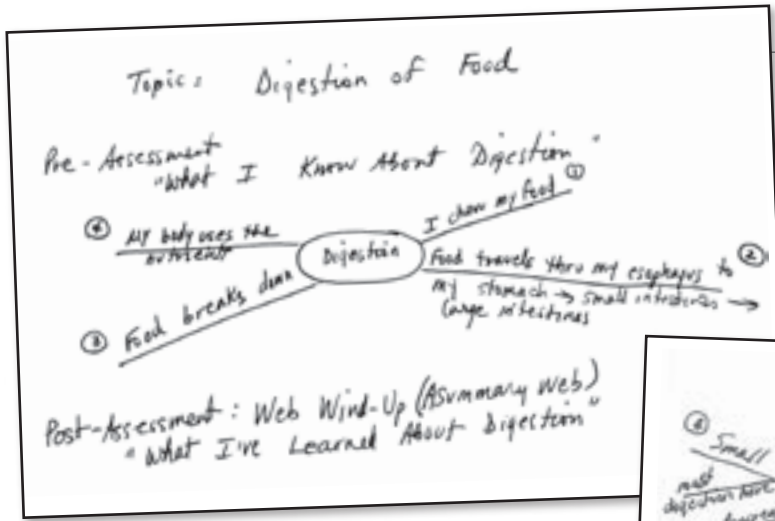 Topic: Digestion of Food
Pre-Assessment
"What I Know About Digestion"
① I chew my food
② Food travels thru my esophagus to
my stomach → small intestines →
large intestines
Digestion
④ My body uses the
nutrients
③ Food breaks down
Post-Assessment: Web Wind-Up (A summary web)
"What I've Learned About Digestion"
④ Small
most
digestion